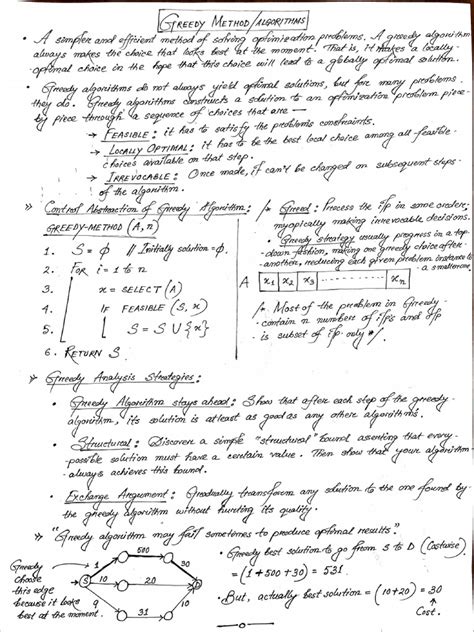 GREEDY METHOD/ALGORITHMS
• A simpler and efficient method of solving optimization problems. A greedy algorithm
always makes the choice that looks best at the moment. That is, it makes a locally-
optimal choice in the hope that this choice will lead to a globally optimal solution.
• Greedy algorithms do not always yield optimal solutions, but for many problems
they do. Greedy algorithms constructs a solution to an optimization problem piece-
by piece through a sequence of choices that are —
→ FEASIBLE: it has to satisfy the problems constraints.
→ LOCALLY OPTIMAL: it has to be the best local choice among all feasible
choices available on that step.
→ IRREVOCABLE: Once made, it can't be changed on subsequent steps
of the algorithm.
» Control Abstraction of Greedy Algorithm:
GREEDY-METHOD (A, n)
1. S = ϕ // Initially solution = ϕ.
2. FOR i = 1 to n
3. x = SELECT (A)
4. IF FEASIBLE (S, x)
5. S = S ∪ {x}
6. RETURN S.
/* Greed: Process the i/p in some order,
myopically making irrevocable decisions.
• Greedy strategy usually progress in a top-
down fashion, making one greedy choice after
another, reducing each given problem instance to
a smaller one.
A x1 x2 x3 ... xn
/* Most of the problem in Greedy
contain n numbers of i/p's and o/p
is subset of i/p only */
» Greedy Analysis Strategies:
• Greedy Algorithm stays ahead: Show that after each step of the greedy-
algorithm, its solution is atleast as good as any other algorithms.
• Structural: Discover a simple "structural" bound asserting that every-
possible solution must have a certain value. Then show that your algorithm
always achieves this bound.
• Exchange Argument: Gradually transform any solution to the one found by
the greedy algorithm without hurting its quality.
» "Greedy algorithm may fail sometimes to produce optimal results".
Greedy
choose
this edge
because it looks
best at the moment.
S 1 500 30
10 20 D
9 31 10
• Greedy best solution to go from S to D (Costwise)
= (1 + 500 + 30) = 531
• But, actually best solution = (10 + 20) = 30
Cost.